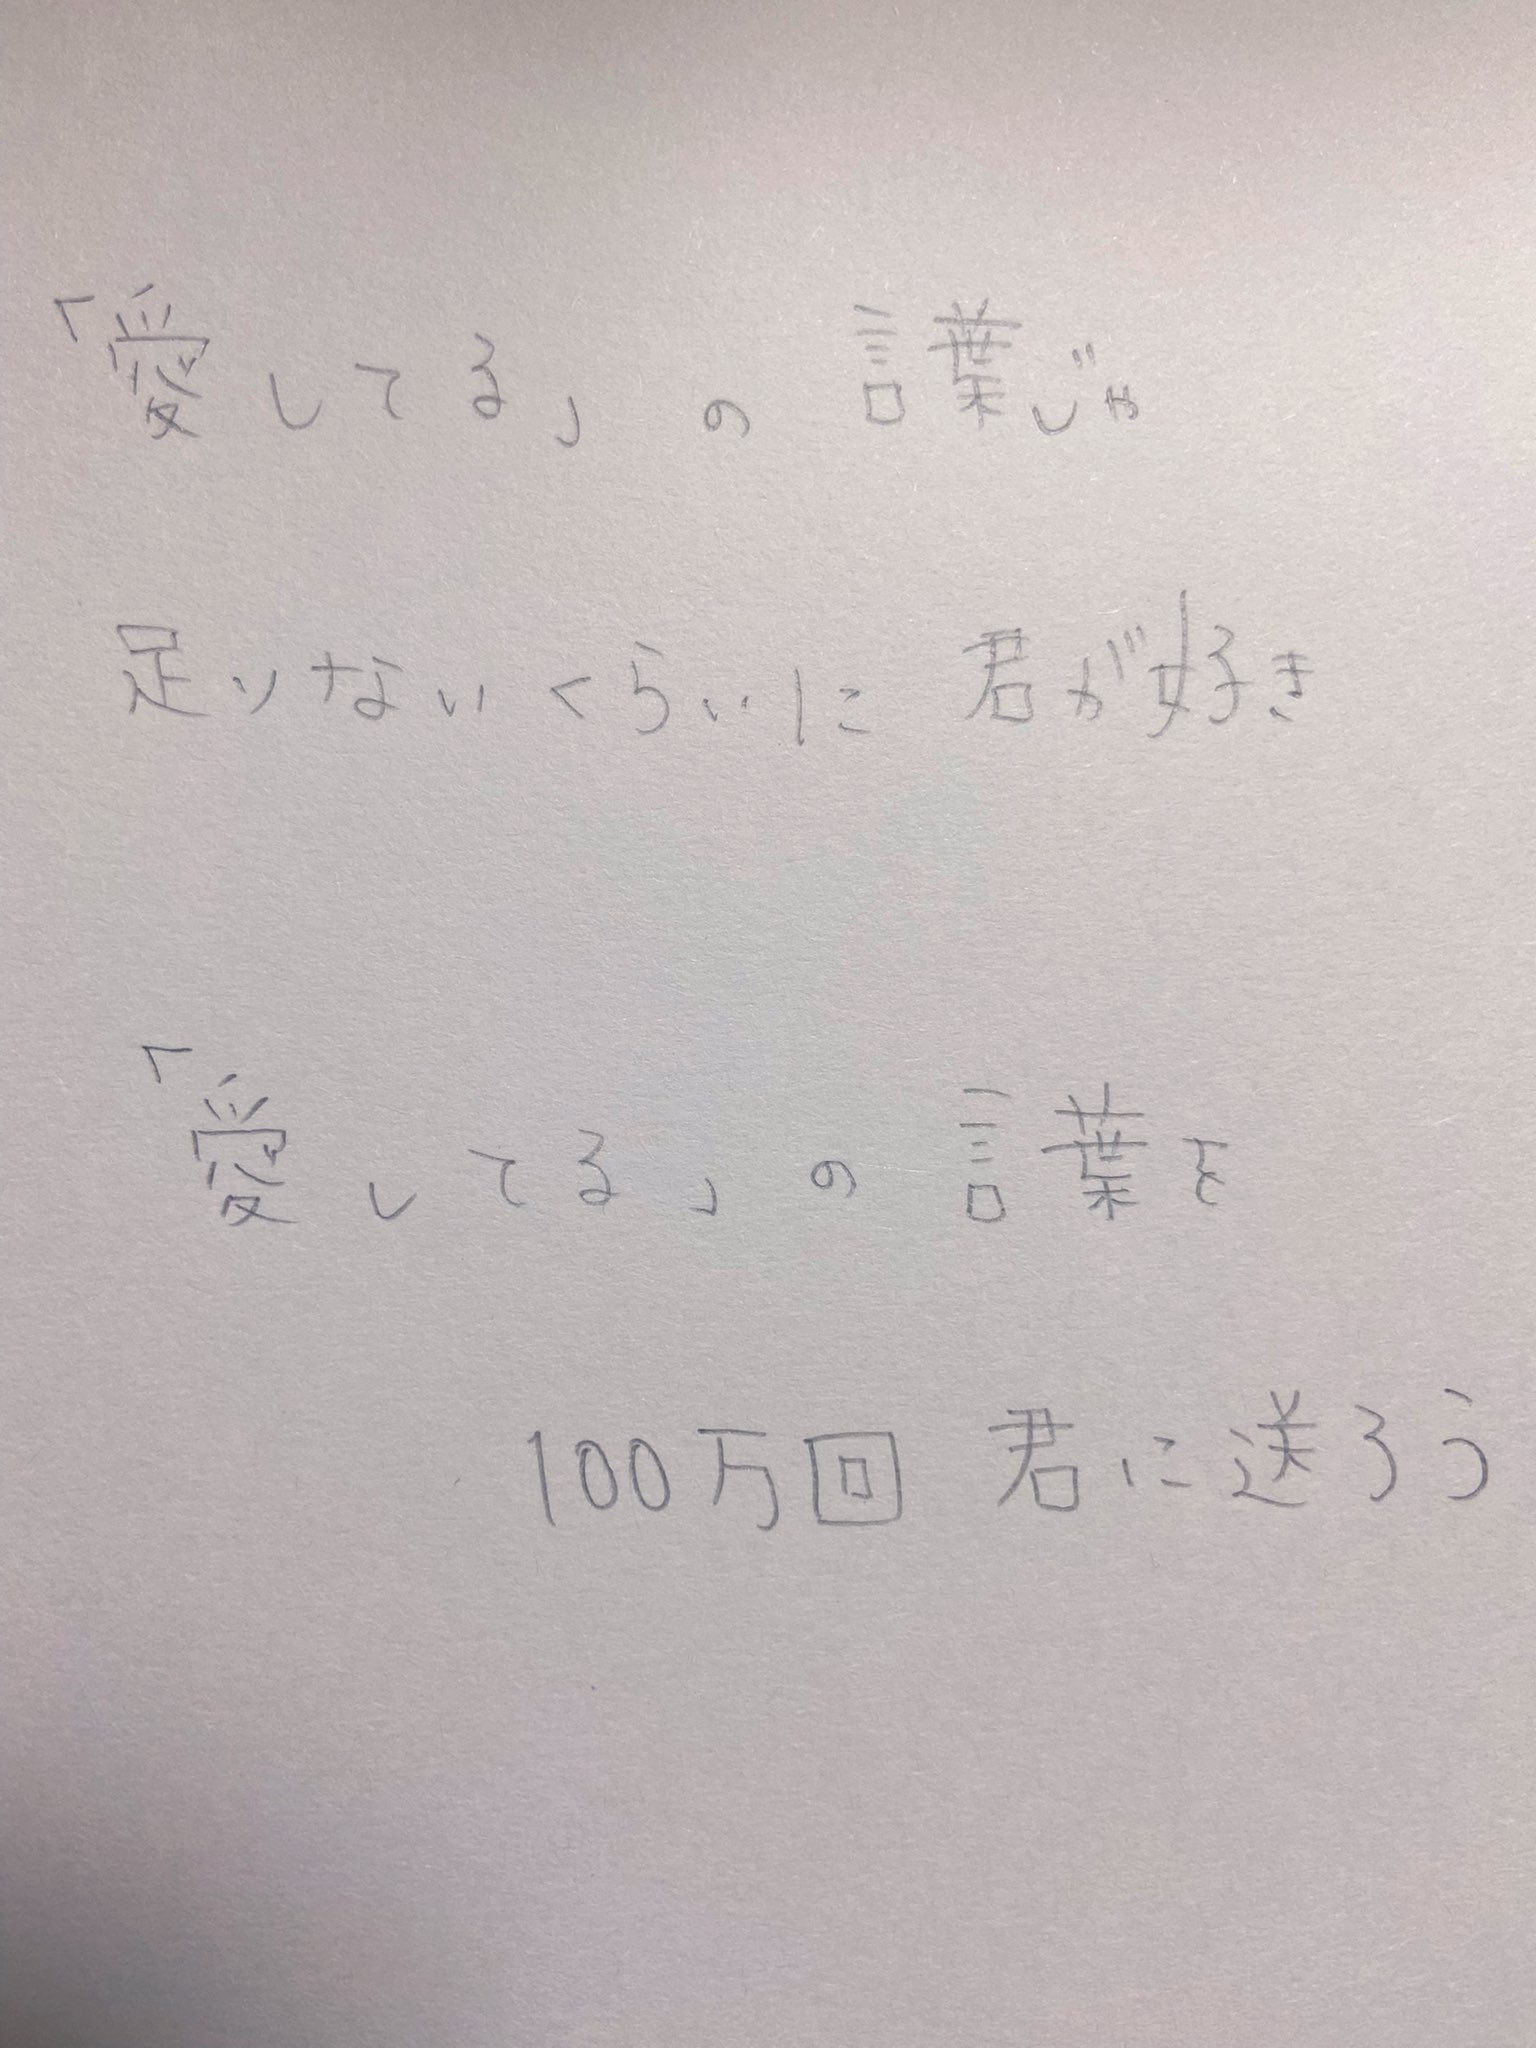 「愛してる」の言葉じゃ
足りないくらいに 君が好き
「愛してる」の言葉を
100万回 君に送ろう